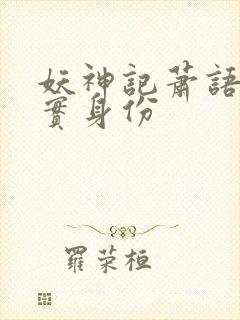 妖神記蕭語
實身份
羅荣桓